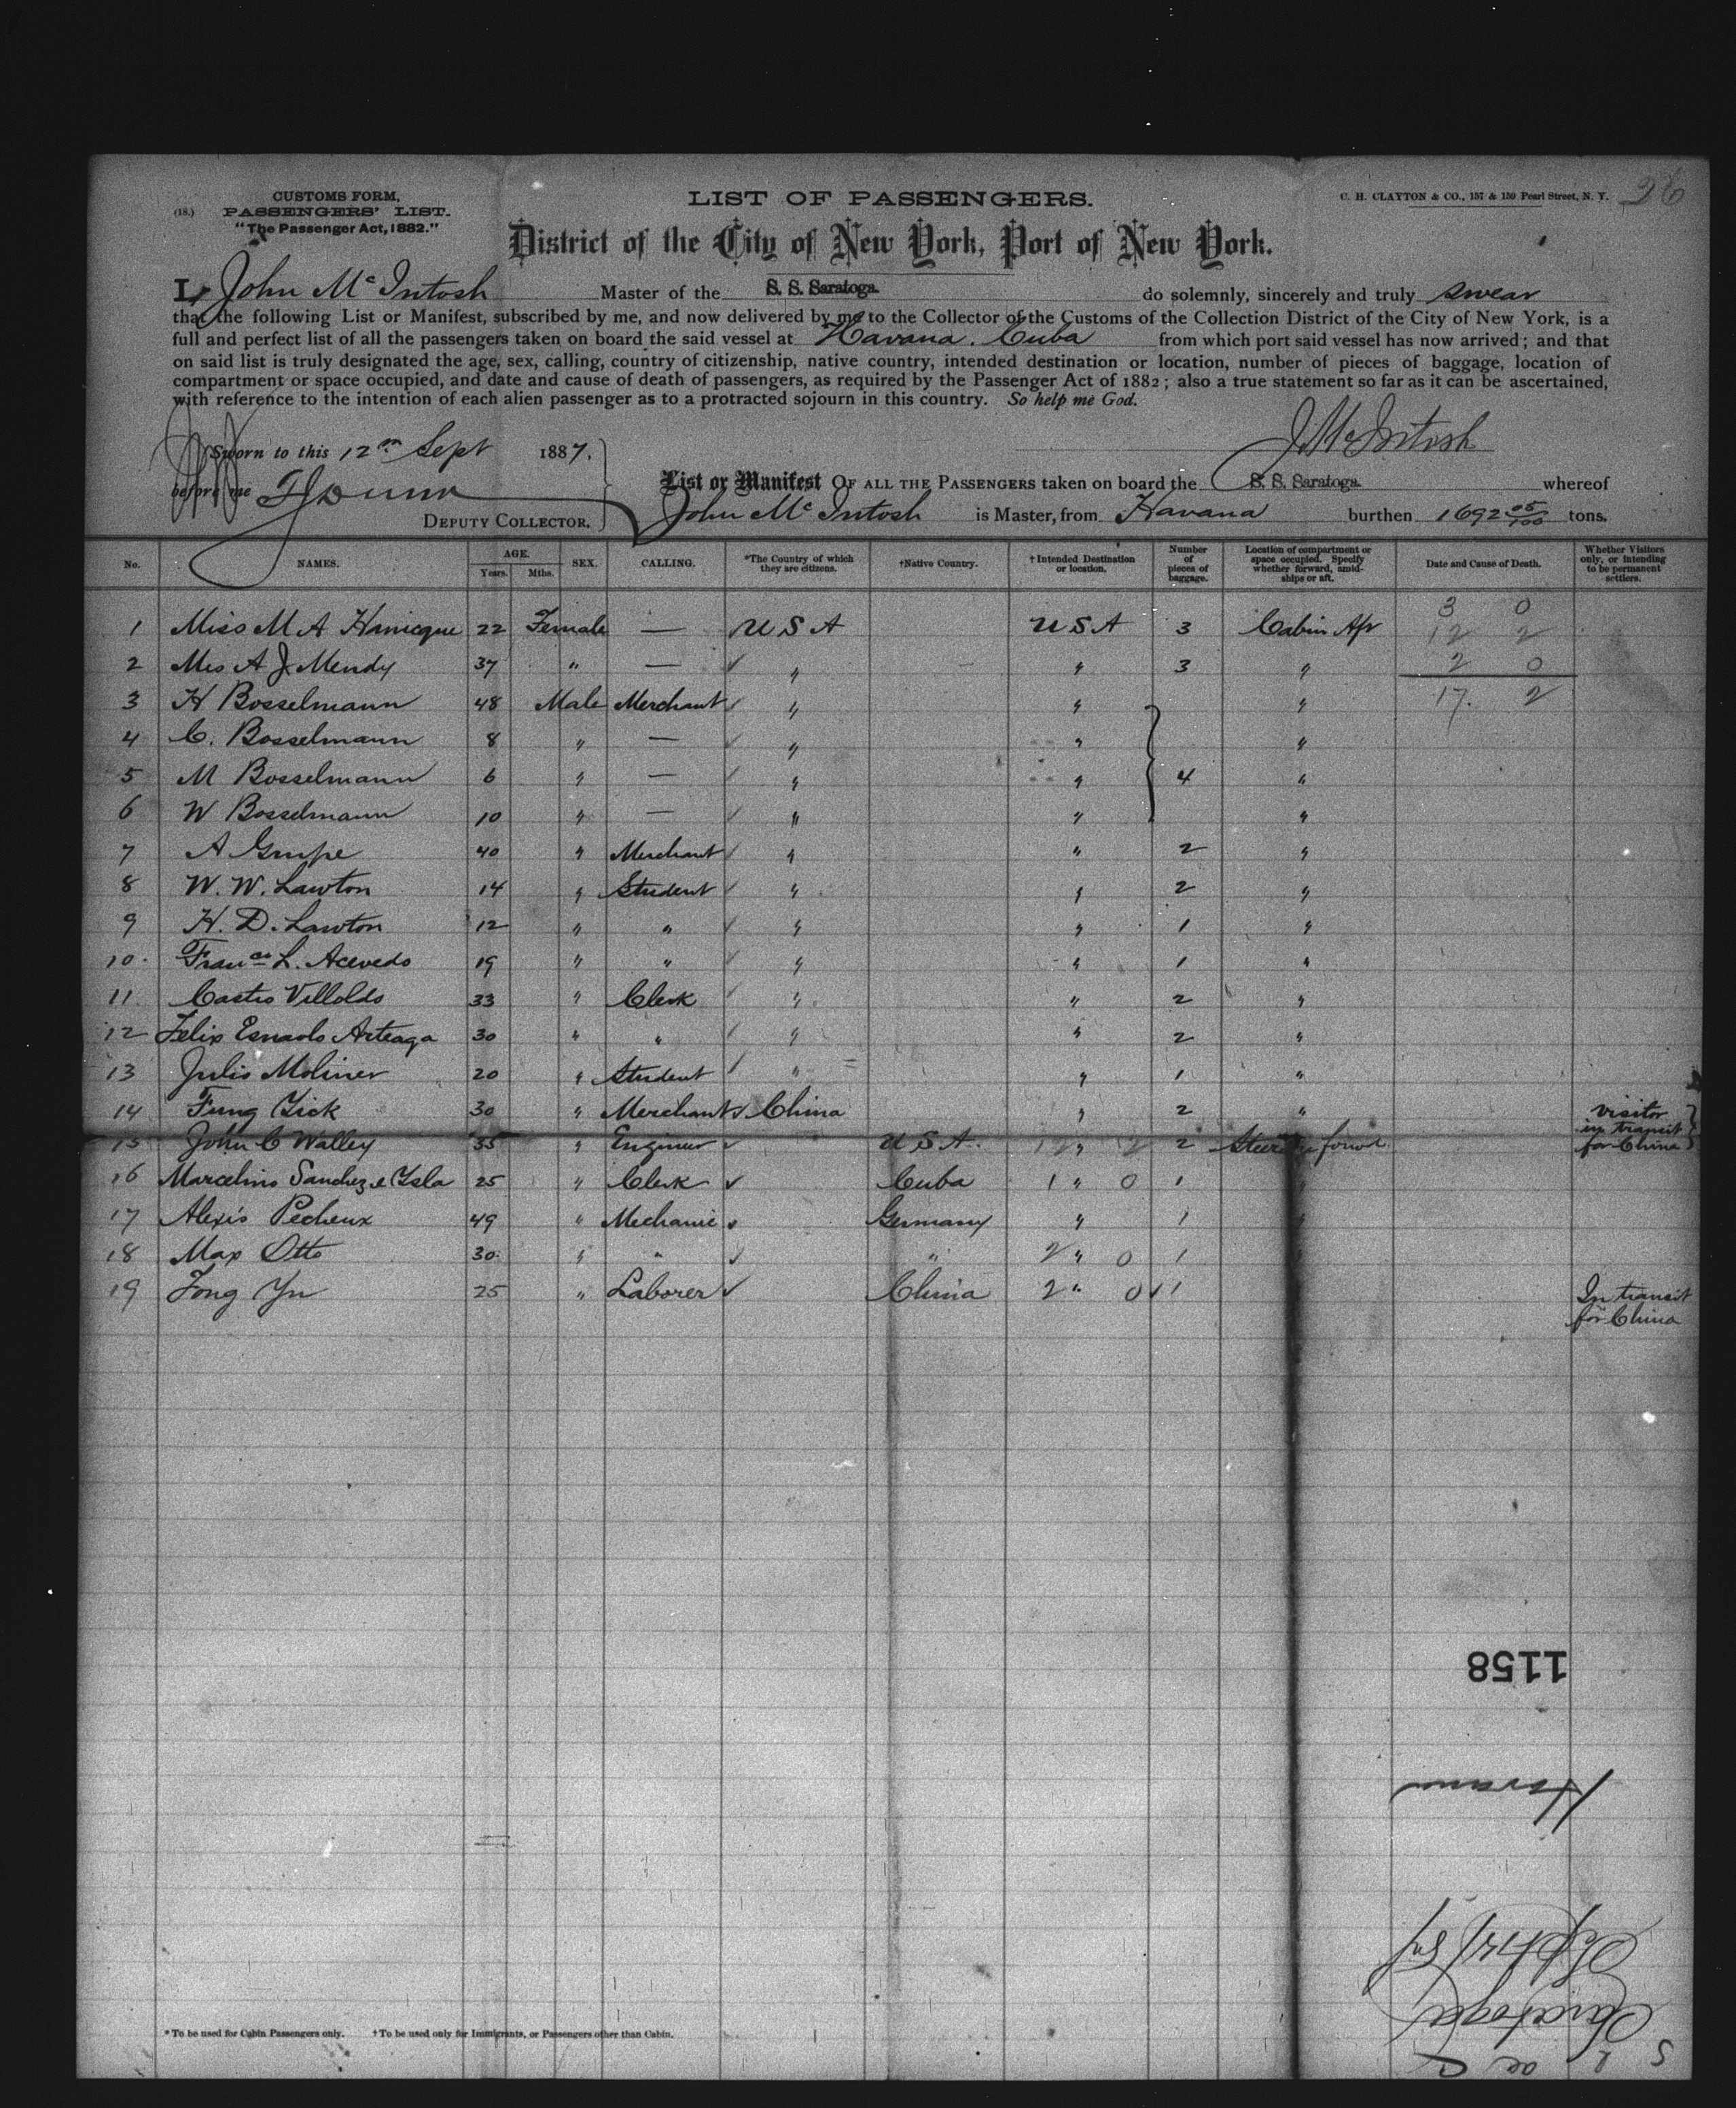 CUSTOMS FORM,
(18.) PASSENGERS' LIST.
"The Passenger Act, 1882."
LIST OF PASSENGERS.
C. H. CLAYTON & CO., 157 & 159 Pearl Street, N. Y. 26
District of the City of New York, Port of New York.
I, John McIntosh Master of the S. S. Saratoga. do solemnly, sincerely and truly swear
that the following List or Manifest, subscribed by me, and now delivered by me to the Collector of the Customs of the Collection District of the City of New York, is a
full and perfect list of all the passengers taken on board the said vessel at Havana. Cuba from which port said vessel has now arrived; and that
on said list is truly designated the age, sex, calling, country of citizenship, native country, intended destination or location, number of pieces of baggage, location of
compartment or space occupied, and date and cause of death of passengers, as required by the Passenger Act of 1882; also a true statement so far as it can be ascertained,
with reference to the intention of each alien passenger as to a protracted sojourn in this country. So help me God.
J. McIntosh
Sworn to this 12th Sept 1887.
before me
DEPUTY COLLECTOR.
List or Manifest OF ALL THE PASSENGERS taken on board the S. S. Saratoga. whereof
John McIntosh is Master, from Havana burthen 1692 05/100 tons.
No. NAMES. AGE. Years. Mths. SEX. CALLING. *The Country of which they are citizens. †Native Country. †Intended Destination or location. Number of pieces of baggage. Location of compartment or space occupied. Specify whether forward, amidships or aft. Date and Cause of Death. Whether Visitors only, or intending to be permanent settlers.
3 0
1 Miss M A Hanicque 22 Female — U S A U S A 3 Cabin Aft 12 2
2 Mrs A J Mendy 37 " — " " 3 " 2 0
3 H Bosselmann 48 Male Merchant " " " 17. 2
4 C. Bosselmann 8 " — " " "
5 M Bosselmann 6 " — " " 4 "
6 W Bosselmann 10 " — " " "
7 A Grupe 40 " Merchant " " 2 "
8 W. W. Lawton 14 " Student " " 2 "
9 H. D. Lawton 12 " " " " 1 "
10 Franco L. Acevedo 19 " " " " 1 "
11 Castro Villoldo 33 " Clerk " " 2 "
12 Felix Esnaolo Arteaga 30 " " " " 2 "
13 Julio Moliner 20 " Student " " 1 "
14 Fung Kick 30 " Merchant China " 2 " visitor
in transit
15 John C Walley 35 " Engineer U S A. " 2 Steerage forwd for China
16 Marcelino Sanchez e Ysla 25 " Clerk Cuba 1 " 0 1 "
17 Alexis Pecheux 49 " Mechanic Germany " 1 "
18 Max Otto 30 " " " 2 " 0 1 "
19 Fong Yu 25 " Laborer China 2 " 0 1 In transit
for China
1158
Havana
Saratoga
*To be used for Cabin Passengers only. †To be used only for Immigrants, or Passengers other than Cabin.